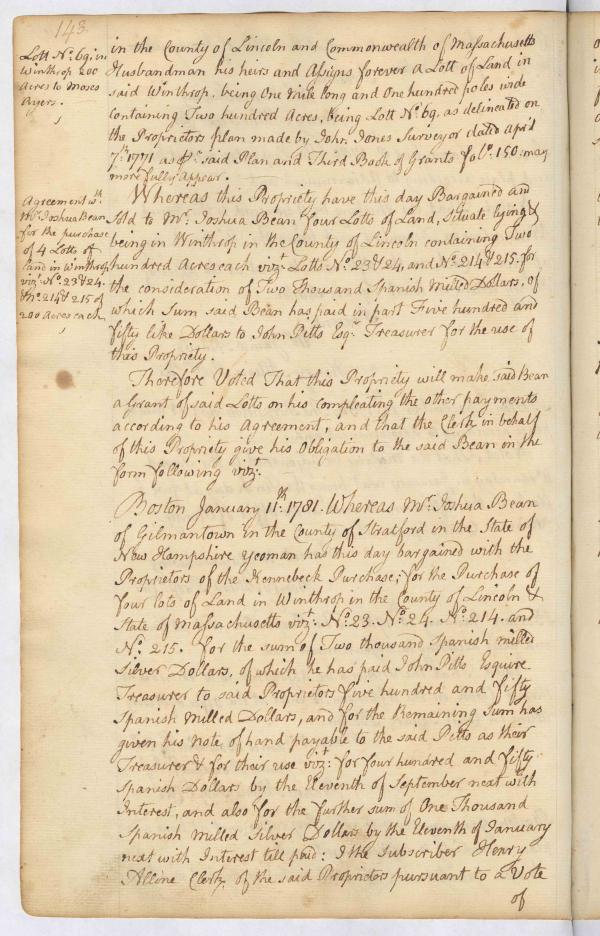 143.
Lott No. 69. in
Winthrop 200
Acres to Moses
Ayers.
in the County of Lincoln and Commonwealth of Massachusetts
Husbandman his heirs and Assigns forever a Lott of Land in
said Winthrop, being One mile long and One hundred poles wide
containing Two hundred Acres, being Lott No. 69, as delineated on
the Proprietors plan made by John Jones Surveyor dated April
7th. 1771 as &c. said Plan and Third Book of Grants folo. 150: may
more fully appear.
Agreement wth.
Mr. Joshua Bean
for the purchase
of 4 Lotts of
land in Winthrop
vizt. No. 23 & 24.
& No. 214 & 215 of
200 acres each
Whereas this Propriety have this day Bargained and
sold to Mr. Joshua Bean four Lotts of Land, situate lying &
being in Winthrop in the County of Lincoln containing Two
hundred Acres each vizt. Lotts No. 23 & 24, and No. 214 & 215. for
the consideration of Two Thousand Spanish Milled Dollars, of
which Sum said Bean has paid in part Five hundred and
fifty like Dollars to John Pitts Esqr. Treasurer for the use of
this Propriety.
Therefore Voted That this Propriety will make said Bean
a Grant of said Lotts on his compleating the other payments
according to his Agreement, and that the Clerk in behalf
of this Propriety give his Obligation to the said Bean in the
form following vizt.
Boston January 11th. 1781. Whereas Mr. Joshua Bean
of Gilmantown in the County of Stratford in the State of
New Hampshire Yeoman has this day bargained with the
Proprietors of the Kennebeck Purchase; for the Purchase of
four lots of Land in Winthrop in the County of Lincoln &
State of Massachusetts vizt. No. 23. No. 24. No. 214. and
No. 215. for the sum of Two thousand Spanish milled
Silver Dollars, of which he has paid John Pitts Esquire
Treasurer to said Proprietors five hundred and fifty
Spanish Milled Dollars, and for the Remaining Sum has
given his Note of hand payable to the said Pitts as their
Treasurer & for their use vizt: for four hundred and fifty
Spanish Dollars by the Eleventh of September next with
Interest, and also for the further sum of One Thousand
Spanish Milled Silver Dollars by the Eleventh of January
next with Interest till paid: I the Subscriber Henry
Alline Clerk of the said Proprietors pursuant to a Vote
of